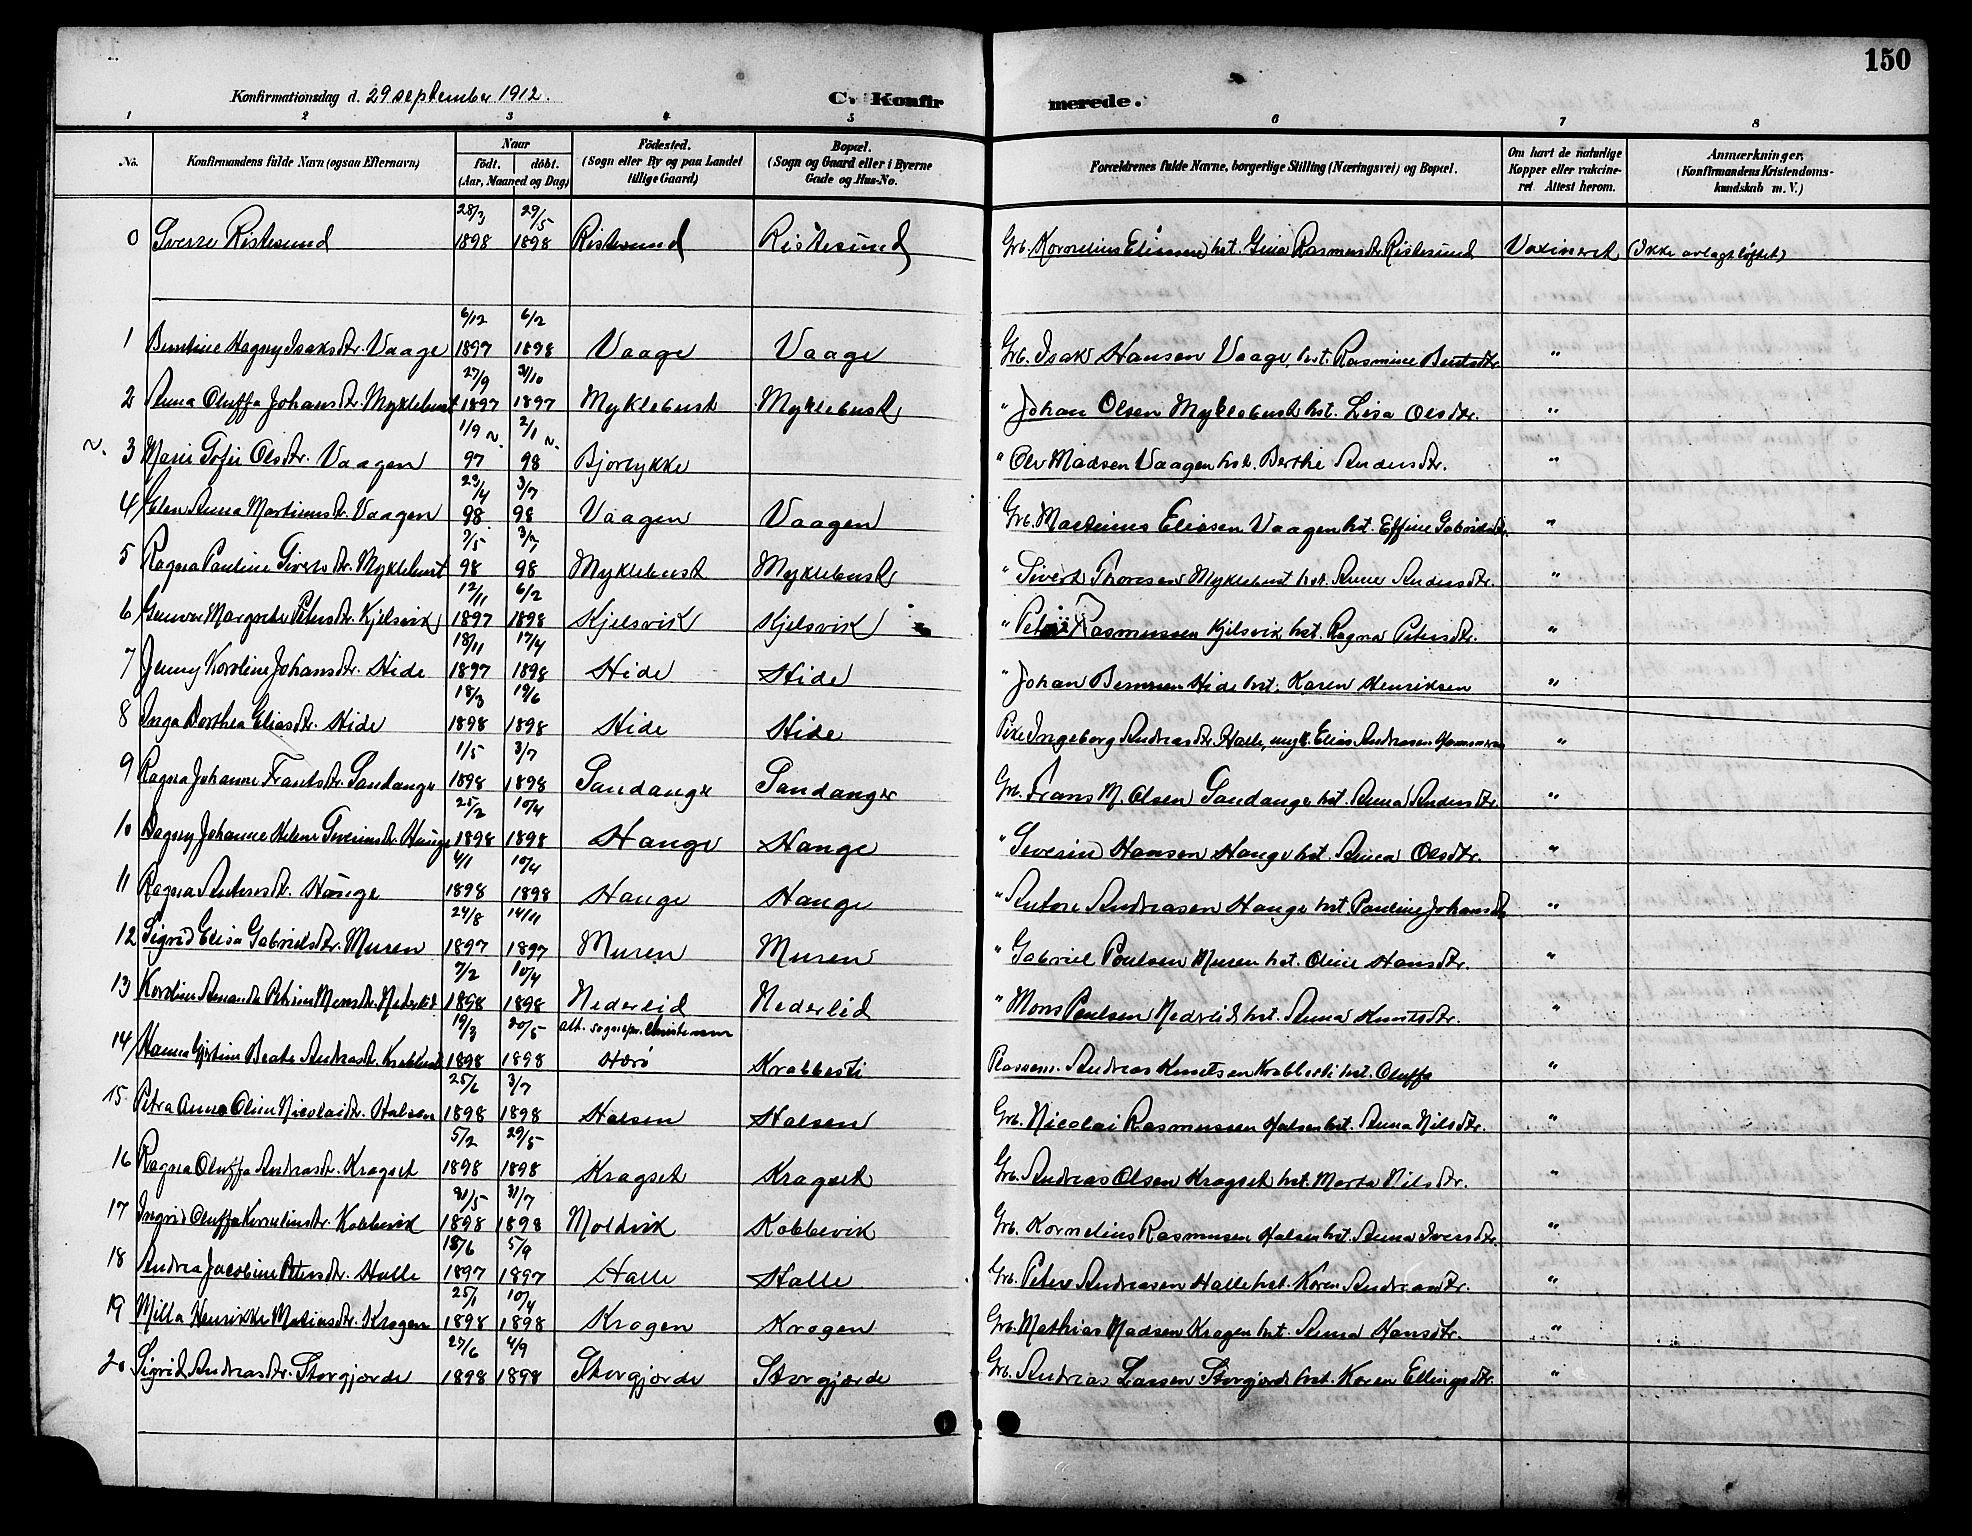 150
Konfirmationsdag d. 29 september 1912.
C. Konfirmerede.
1 2 3 4 5 6 7 8
No. Konfirmandens fulde Navn (ogsaa Efternavn) Naar födt. döbt. (Aar, Maaned og Dag) Födested. (Sogn eller By og paa Landet tillige Gaard) Bopæl. (Sogn og Gaard eller i Byerne Gade og Hus-No. Forældrenes fulde Navne, borgerlige Stilling (Næringsvei) og Bopæl. Om havt de naturlige Kopper eller vakcineret Attest herom. Anmærkninger. (Konfirmandens Kristendomskundskab m. V.)
28/3 29/5
0 Sverre Ristesund 1898 1898 Ristesund Ristesund Grb. Kornelius hst. Gina Rasmusdtr. Ristesund Vaxineret (Ikke avlagt løftet)
6/12 6/2
1 Berntine Hagny Isaksdtr. Vaage 1897 1898 Vaage Vaage Grb. Isak Hansen Vaage, hst. Rasmine Berntsdtr. "
27/9 31/10
2 Anna Oluffa Johansdtr. Myklebust 1897 1897 Myklebust Myklebust " Johan Olsen Myklebust hst. Lisa Olsdtr. "
1/9 n. 2/1 n.
n. 3 Marie Sofie Olsdtr. Vaagen 97 98 Bjorlykke " Ole Madsen Vaagen hst. Berthe Andersdtr. "
29/4 3/7
4 Elen Anna Martinusdtr. Vaagen 98 98 Vaagen Vaagen Grb. Martinus Eliasen Vaagen hst. Effine Gabrielsdtr. "
2/5 3/7
5 Ragna Pauline Siverts dtr. Myklebust 98 98 Myklebust Myklebust " Sivert Thoresen Myklebust hst. Anne Andersdtr. "
12/11 6/2
6 Gunvor Margrethe Petersdtr. Kjelsvik 1897 1898 Kjelsvik Kjelsvik " Peter Rasmussen Kjelsvik hst. Ragna Petersdtr. "
18/11 17/4
7 Jenny Karoline Johansdtr. Hide 1897 1898 Hide Hide " Johan Berntsen Hide hst. Karen Henriksen "
18/3 19/6
8 Inga Dorthea Eliasdtr. Hide 1898 1898 Hide Hide Pike Ingeborg Andreasdtr. Halle, ungk. Elias Andreasen "
1/5 3/7
9 Ragna Johanne Frantsdtr. Sandanger 1898 1898 Sandanger Sandanger Grb. Frans M. Olsen Sandanger hst. Anna Andersdtr. "
25/2 10/4
10 Dagny Johanne Helene Severinsdtr. Hauge 1898 1898 Hauge Hauge " Severin Hansen Hauge hst. Anna Olsdtr. "
4/1 10/4
11 Ragna Antonsdtr. Hauge 1898 1898 Hauge Hauge " Anton Andreasen Hauge hst Pauline Johansdtr. "
24/8 14/11
12 Sigrid Elisa Gabrielsdtr. Muren 1897 1897 Muren Muren " Gabriel Poulsen Muren hst. Oline Hansdtr. "
7/2 10/4
13 Karoline Amanda Petrine Monsdtr. Nederlid 1898 1898 Nederlid Nederlid " Mons Paulsen Nedrelid hst. Anna Knutsdtr. "
19/3 20/5 att. sognepr. Christensen
14 Hanna Gjertine Beate Andreasdtr. Krabbesti 1898 1898 Herø Krabbesti Plassem. Andreas Knutsen Krabbesti hst. Oluffa "
25/6 3/7
15 Petra Anna Oline Nicolaisdtr. Halsen 1898 1898 Halsen Halsen Grb. Nicolai Rasmussen Halsen hst. Anna Nilsdtr. "
5/2 29/5
16 Ragna Oluffa Andreasdtr. Kragset 1898 1898 Kragset Kragset Grb. Andreas Olsen Kragset hst. Marta Nilsdtr. "
21/5 31/7
17 Ingrid Oluffa Korneliusdtr. Kobbevik 1898 1898 Moldvik Kobbevik Grb. Kornelius Rasmusen Halsen hst. Anna Iversdtr. "
18/6 5/9
18 Andrea Jacobine Petersdtr. Halle 1897 1897 Halle Halle Grb. Peter Andreasen Halle hst. Karen Andreasdtr. "
25/1 10/4
19 Milla Henrikke Matiasdtr. Kragen 1898 1898 Kragen Kragen Grb. Mathias Madsen Kragen hst. Anna Hansdtr. "
27/6 4/9
20 Sigrid Andreasdtr. Storgjorde 1898 1898 Storgjorde Storgjorde Grb. Andreas Larsen Storgjorde hst. Karen Ellingsdtr. "